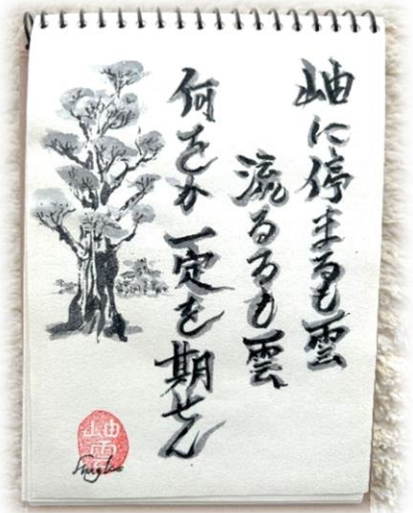 岫に停まるも雲
流るるも雲
何をか一定を期せん
岫雲